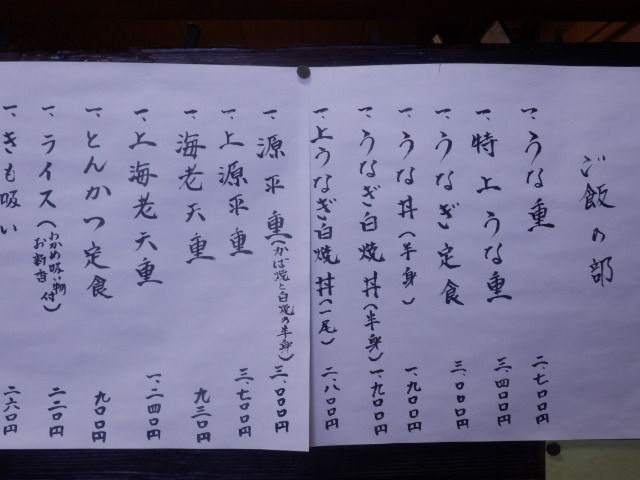 ご飯の部
一、うな重 二、七〇〇円
一、特上うな重 三、四〇〇円
一、うなぎ定食 三、〇〇〇円
一、うな丼(半身) 一、九〇〇円
一、うなぎ白焼丼(半身) 一、九〇〇円
一、上うなぎ白焼丼(一尾) 二、八〇〇円
一、源平重(かば焼と白焼の半身) 三、〇〇〇円
一、上源平重 三、七〇〇円
一、海老天重 九三〇円
一、上海老天重 一、二四〇円
一、とんかつ定食 九〇〇円
一、ライス(わかめ吸い物
お新香付) 二二〇円
一、きも吸い 二六〇円